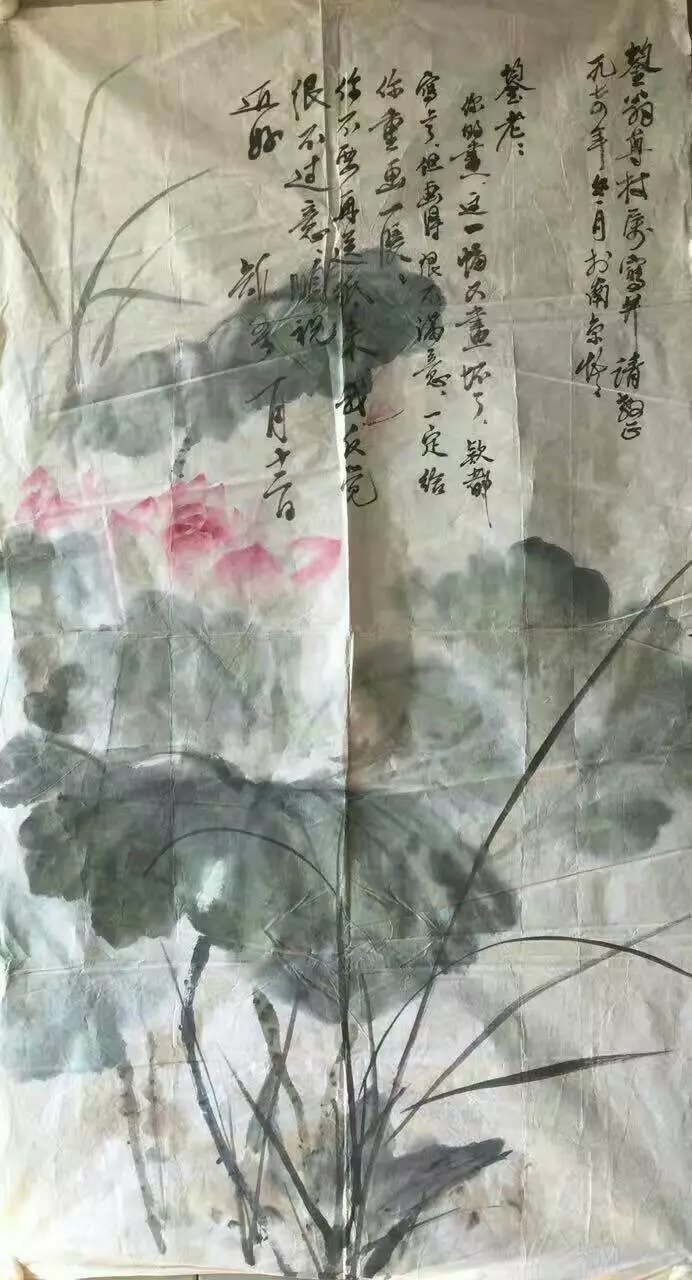 翁尊属寫并请教正
九七四年一月于南京
老：
你的画，这一幅又画坏了，款都
寫了，但画得很不满意，一定给
你重画一张。
你不要再送纸来，我反觉
很不过意，顺祝
近好
一月十二日